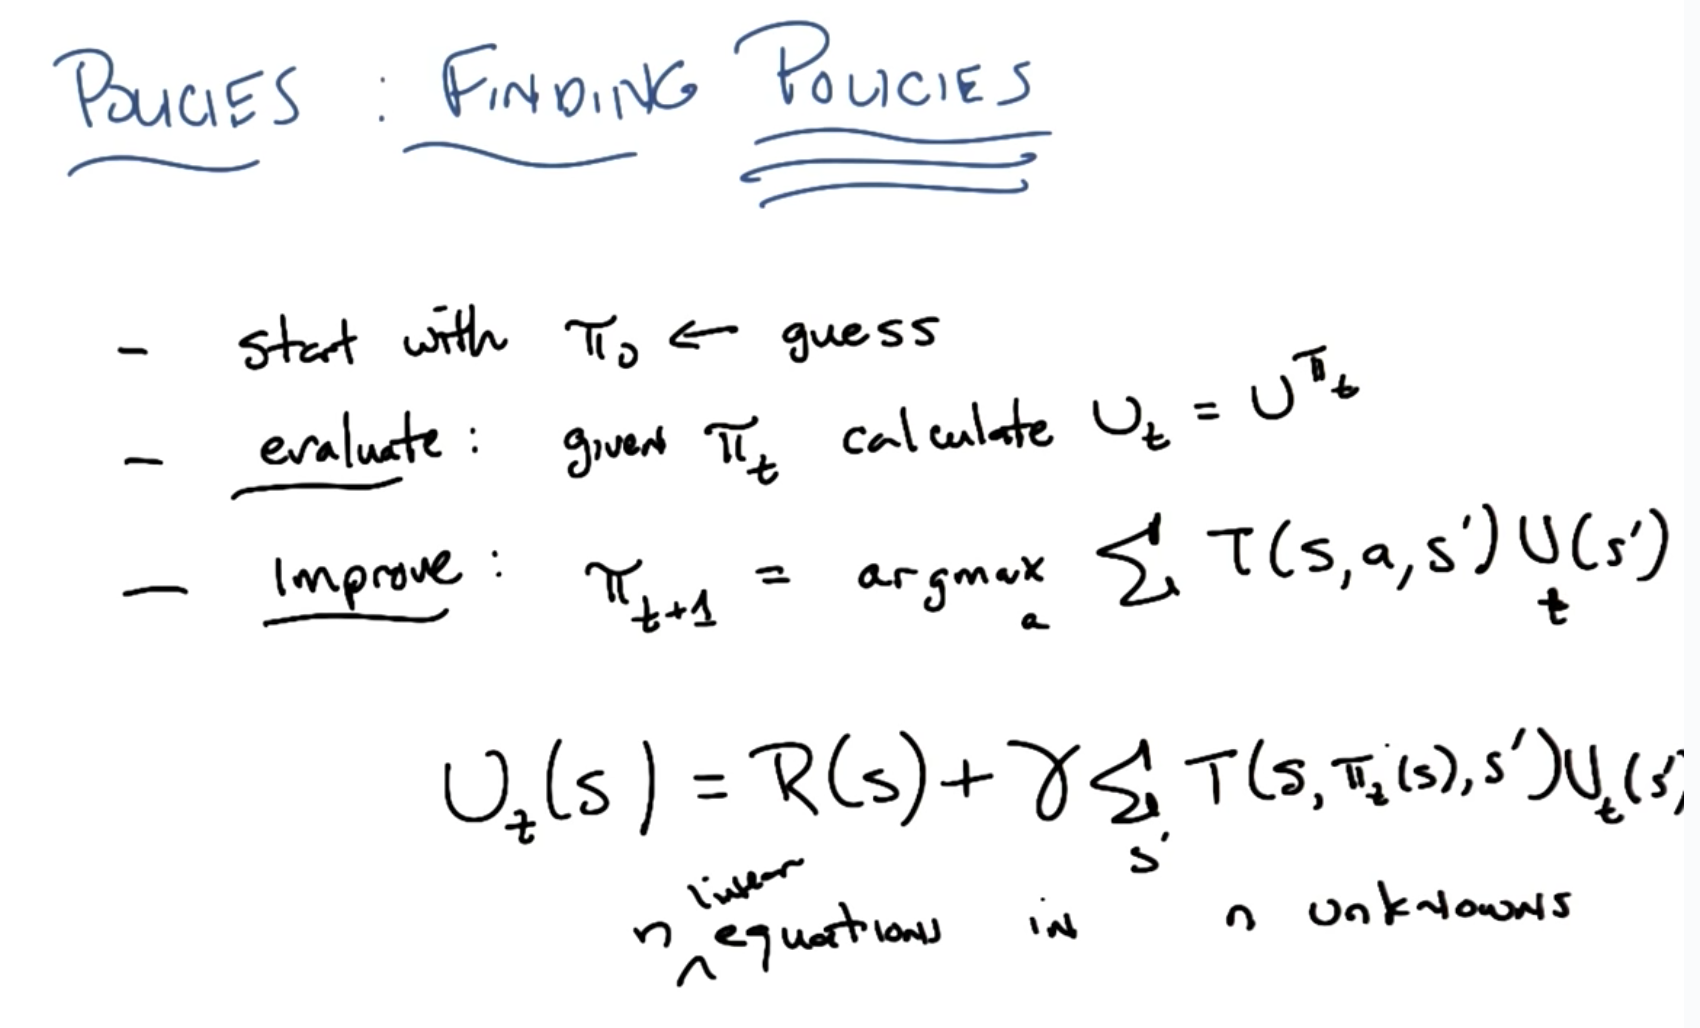 POLICIES : FINDING POLICIES
- start with π₀ ← guess
- evaluate: given πₜ calculate Uₜ = U^πₜ
- Improve: πₜ₊₁ = argmaxₐ Σ T(s,a,s') Uₜ(s')
Uₜ(s) = R(s) + γ Σ_s' T(s, πₜ(s), s') Uₜ(s')
n ^linear equations in n unknowns